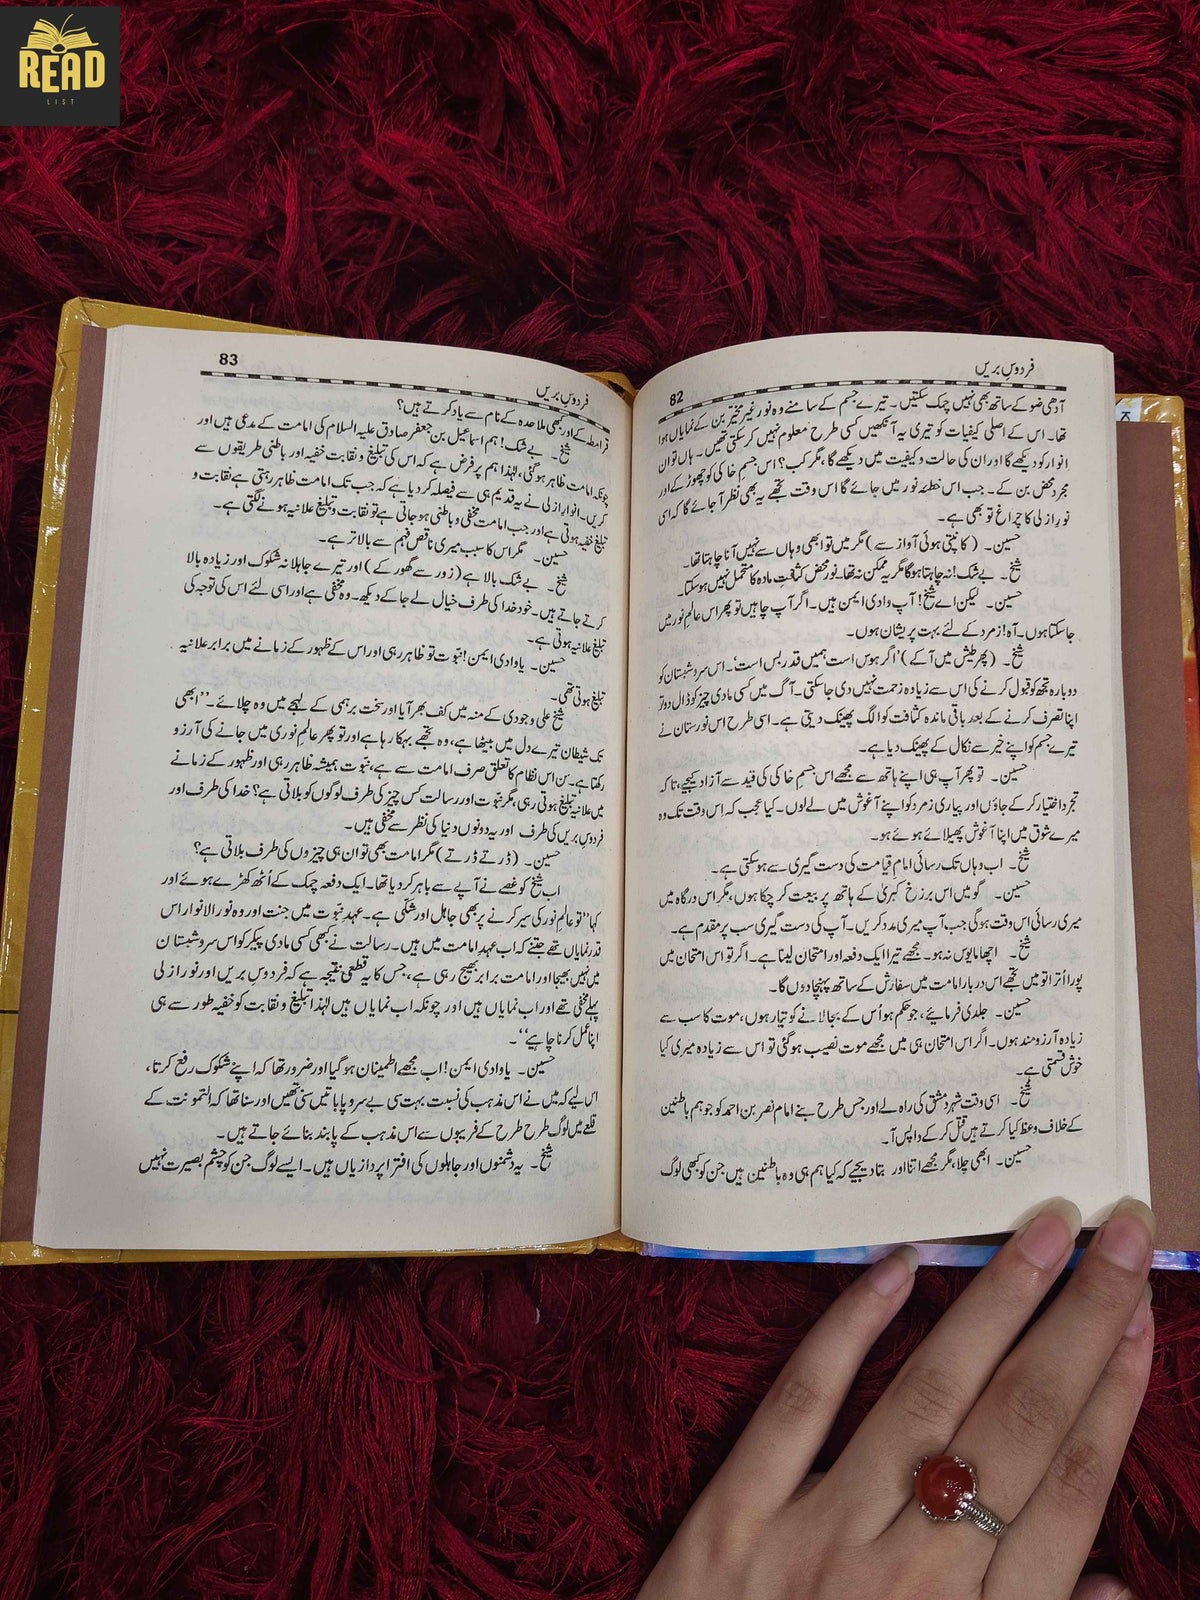 READ
LIST
فردوسِ بریں
82
آدھی ضو کے ساتھ بھی نہیں چمک سکتیں۔ تیرے جسم کے سامنے وہ نور غیر متحیز بن کے نمایاں ہوا
تھا۔ اس کے اصلی کیفیات کو تیری یہ آنکھیں کسی طرح معلوم نہیں کر سکتی تھیں۔ ہاں تو ان
انوار کو دیکھے گا اور ان کی حالت و کیفیت میں دیکھے گا، مگر کب؟ اس جسمِ خاکی کو چھوڑ کے اور
مجردِ محض بن کے۔ جب اس خطۂ نور میں جائے گا اس وقت تجھے یہ بھی نظر آ جائے گا کہ اسی
نورِ ازلی کا چراغ تو بھی ہے۔
حسین۔ (کانپتی ہوئی آواز سے) مگر میں تو ابھی وہاں سے نہیں آنا چاہتا تھا۔
شیخ۔ بے شک! نہ چاہتا ہو گا مگر یہ ممکن نہ تھا۔ نورِ محض کثافتِ مادہ کا متحمل نہیں ہو سکتا۔
حسین۔ لیکن اے شیخ! آپ وادی ایمن ہیں۔ اگر آپ چاہیں تو پھر اس عالمِ نور میں
جا سکتا ہوں۔ آہ! زمرد کے لئے بہت پریشان ہوں۔
شیخ۔ (پھر طیش میں آ کے) ’اگر ہوس است ہمیں قدر بس است‘۔ اس سروشستان کو
دوبارہ تجھ کو قبول کرنے کی اس سے زیادہ زحمت نہیں دی جا سکتی۔ آگ میں کسی مادی چیز کو ڈال دو تو
اپنا تصرف کرنے کے بعد باقی ماندہ کثافت کو الگ پھینک دیتی ہے۔ اسی طرح اس نورستان نے
تیرے جسم کو اپنے خیر سے نکال کے پھینک دیا ہے۔
حسین۔ تو پھر آپ ہی اپنے ہاتھ سے مجھے اس جسمِ خاکی کی قید سے آزاد کیجیے، تاکہ
تجرد اختیار کر کے جاؤں اور پیاری زمرد کو اپنے آغوش میں لے لوں۔ کیا عجب کہ اس وقت تک وہ
میرے شوق میں اپنا آغوش پھیلائے ہوئے ہو۔
شیخ۔ اب وہاں تک رسائی امامِ قیامت کی دست گیری سے ہو سکتی ہے۔
حسین۔ گو میں اس برزخِ کبریٰ کے ہاتھ پر بیعت کر چکا ہوں، مگر اس درگاہ میں
میری رسائی اس وقت ہو گی جب آپ میری مدد کریں۔ آپ کی دست گیری سب پر مقدم ہے۔
شیخ۔ اچھا مایوس نہ ہو۔ مجھے تیرا ایک دفعہ اور امتحان لینا ہے۔ اگر تو اس امتحان میں
پورا اُترا تو میں تجھے اس دربارِ امامت میں سفارش کے ساتھ پہنچا دوں گا۔
حسین۔ جلدی فرمائیے، جو حکم ہو اُس کے بجا لانے کو تیار ہوں، موت کا سب سے
زیادہ آرزو مند ہوں۔ اگر اس امتحان ہی میں مجھے موت نصیب ہو گئی تو اس سے زیادہ میری کیا
خوش قسمتی ہے۔
شیخ۔ اسی وقت شہر دمشق کی راہ لے اور جس طرح بنے امام نصر بن احمد کو جو ہم باطنین
کے خلاف وعظ کیا کرتے ہیں قتل کر کے واپس آ۔
حسین۔ ابھی چلا، مگر مجھے اتنا اور بتا دیجیے کہ کیا ہم ہی وہ باطنین ہیں جن کو کبھی لوگ
83
فردوسِ بریں
قرامطہ کے اور کبھی ملاحدہ کے نام سے یاد کرتے ہیں؟
شیخ۔ بے شک! ہم اسماعیل بن جعفر صادق علیہ السلام کی امامت کے مدعی ہیں اور
چونکہ امامت ظاہر ہو گئی، لہٰذا ہم پر فرض ہے کہ اس کی تبلیغ و نقابت خفیہ اور باطنی طریقوں سے
کریں۔ انوارِ ازلی نے یہ قدیم ہی سے فیصلہ کر دیا ہے کہ جب تک امامت ظاہر رہتی ہے نقابت و
تبلیغ خفیہ ہوتی ہے اور جب امامت مخفی و باطنی ہو جاتی ہے تو نقابت و تبلیغ علانیہ ہونے لگتی ہے۔
حسین۔ مگر اس کا سبب میری ناقص فہم سے بالاتر ہے۔
شیخ۔ بے شک بالا ہے (زور سے گھور کے) اور تیرے جاہلانہ شکوک اور زیادہ بالا
کرتے جاتے ہیں۔ خود خدا کی طرف خیال لے جا کے دیکھ۔ وہ مخفی ہے اور اسی لئے اس کی توجہ کی
تبلیغ علانیہ ہوتی ہے۔
حسین۔ یا وادی ایمن! نبوت تو ظاہر رہی اور اس کے ظہور کے زمانے میں برابر علانیہ
تبلیغ ہوتی تھی۔
شیخ علی وجودی کے منہ میں کف بھر آیا اور سخت برہمی کے لہجے میں وہ چلائے۔ ’’ابھی
تک شیطان تیرے دل میں بیٹھا ہے، وہ تجھے بہکا رہا ہے اور تو پھر عالمِ نوری میں جانے کی آرزو
رکھتا ہے۔ سن اس نظام کا تعلق صرف امامت سے ہے، نبوت ہمیشہ ظاہر رہی اور ظہور کے زمانے
میں علانیہ تبلیغ ہوتی رہی، مگر نبوت اور رسالت کس چیز کی طرف لوگوں کو بلاتی ہے؟ خدا کی طرف اور
فردوسِ بریں کی طرف اور یہ دونوں دنیا کی نظر سے مخفی ہیں۔
حسین۔ (ڈرتے ڈرتے) مگر امامت بھی تو ان ہی چیزوں کی طرف بلاتی ہے؟
اب شیخ کو غصے نے آپے سے باہر کر دیا تھا۔ ایک دفعہ چمک کے اُٹھ کھڑے ہوئے اور
کہا ’’تو عالمِ نور کی سیر کرنے پر بھی جاہل اور شکّی ہے۔ عہدِ نبوت میں جنت اور وہ نور الانوار اس
قدر نمایاں تھے جتنے کہ اب عہدِ امامت میں ہیں۔ رسالت نے کبھی کسی مادی پیکر کو اس سروشستان
میں نہیں بھیجا اور امامت برابر بھیج رہی ہے، جس کا یہ قطعی نتیجہ ہے کہ فردوسِ بریں اور نورِ ازلی
پہلے مخفی تھے اور اب نمایاں ہیں اور چونکہ اب نمایاں ہیں لہٰذا تبلیغ و نقابت کو خفیہ طور سے ہی
اپنا عمل کرنا چاہیے‘‘۔
حسین۔ یا وادی ایمن! اب مجھے اطمینان ہو گیا اور ضرور تھا کہ اپنے شکوک رفع کرتا،
اس لیے کہ میں نے اس مذہب کی نسبت بہت سی بے سروپا باتیں سنی تھیں اور سنا تھا کہ التمونت کے
قلعے میں لوگ طرح طرح کے فریبوں سے اس مذہب کے پابند بنائے جاتے ہیں۔
شیخ۔ یہ دشمنوں اور جاہلوں کی افترا پردازیاں ہیں۔ ایسے لوگ جن کو چشمِ بصیرت نہیں